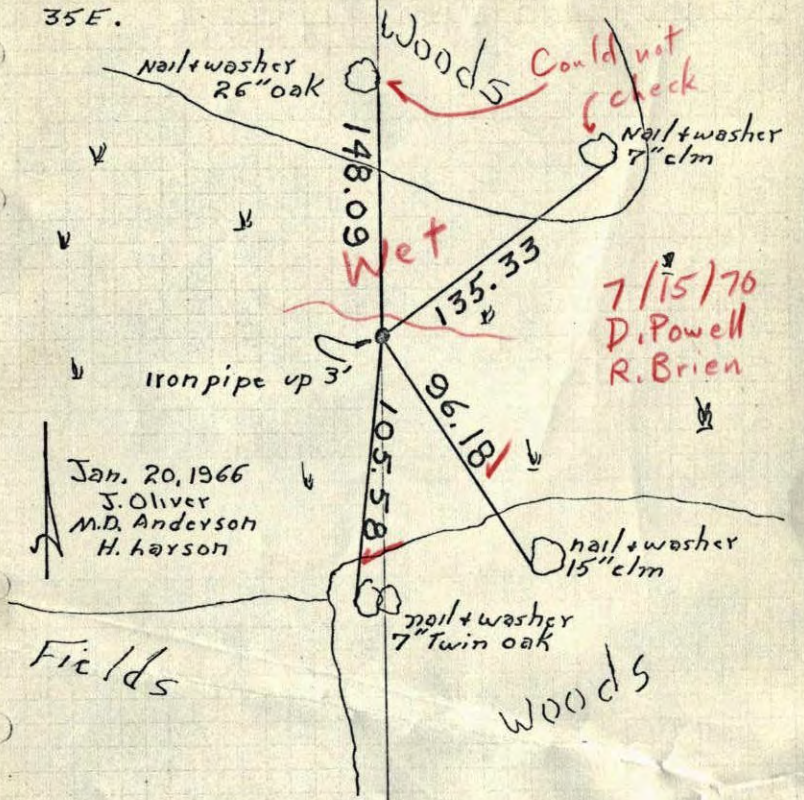 35E.
Woods
Nail+washer
26" oak
Could not
check
Nail+washer
7" elm
148.09
Wet
135.33
7/15/70
D. Powell
R. Brien
Iron pipe up 3'
96.18
105.58
Jan. 20, 1966
J. Oliver
M.D. Anderson
H. Larson
nail+washer
15" elm
nail+washer
7" Twin oak
Fields
Woods